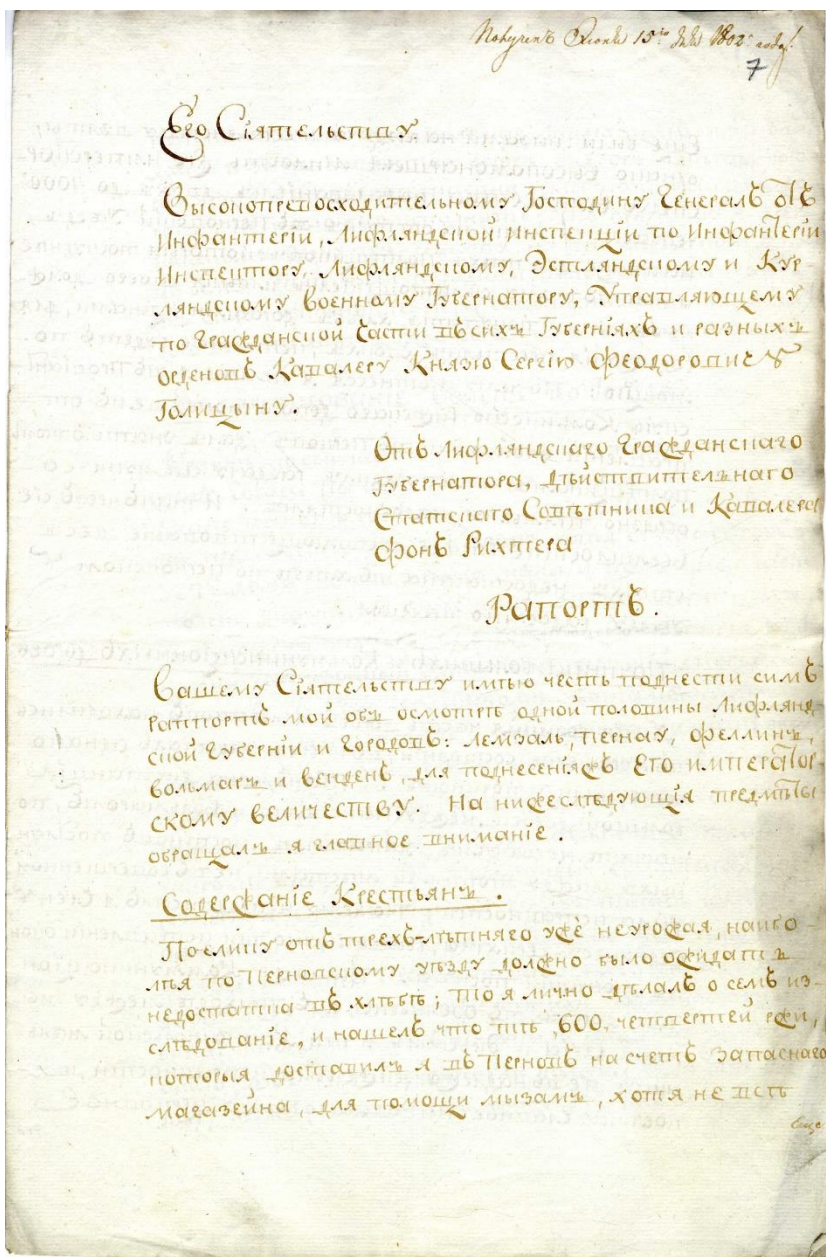 Получен Июня 15го дня 1802 года.
7
Его Сіятельству
Высокопревосходительному Господину Генералъ отъ
Инфантеріи, Лифляндской Инспекціи по Инфантеріи
Инспектору, Лифляндскому, Эстляндскому и Кур-
ляндскому военному Губернатору, Управляющему
по гражданской части въ сихъ Губерніяхъ и разныхъ
орденовъ Кавалеру Князю Сергію Феодоровичу
Голицыну.
Отъ Лифляндскаго Гражданскаго
Губернатора, дѣйствительнаго
Статскаго Совѣтника и Кавалера
фонъ Рихтера
Рапортъ.
Вашему Сіятельству имѣю честь поднести симъ
раппортъ мой объ осмотрѣ одной половины Лифлянд-
ской Губерніи и городовъ: Лемзаль, Пернау, Феллинъ,
Вольмаръ и Венденъ, для поднесенія ЕГО ИМПЕРАТОР
СКОМУ ВЕЛИЧЕСТВУ. На нижеслѣдующія предмѣты
обращалъ я главное вниманіе.
Содержаніе Крестьянъ.
Поелику отъ трехъ-лѣтняго уже неурожая, наибо-
лѣя по Перновскому уѣзду должно было ожидать
недостатка въ хлѣбѣ; то я лично дѣлалъ о семъ из-
слѣдованіе, и нашелъ что тѣ 600, четвертей ржи,
которыя доставилъ я въ Перновъ на счетъ запаснаго
магазейна, для помощи мызамъ, хотя не всѣ
Еще